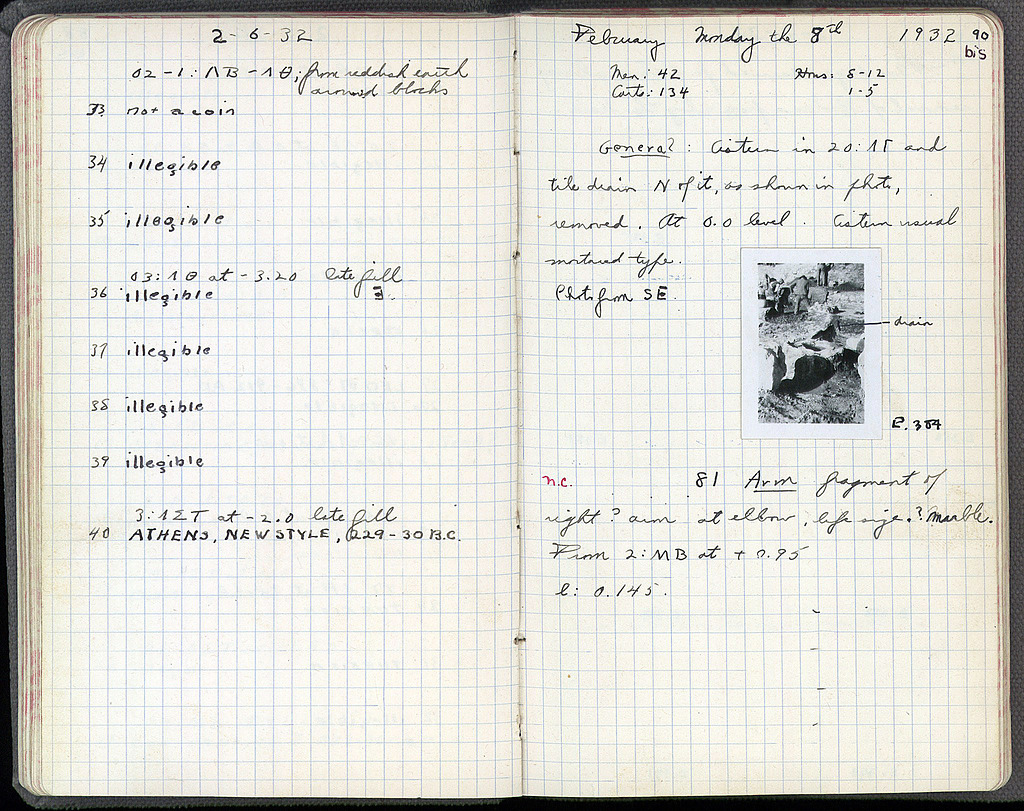 2-6-32
02-1: ΛΒ-ΛΘ; from reddish earth
around blocks
33 not a coin
34 illegible
35 illegible
03:ΛΘ at -3.20 late fill
36 illegible Ξ.
37 illegible
38 illegible
39 illegible
3:ΛΣΤ at -2.0 late fill
40 ATHENS, NEW STYLE, 229-30 B.C.
February Monday the 8th 1932 90
bis
Men: 42 Hours: 8-12
Carts: 134 1-5
General: Cistern in 20:ΛΓ and
tile drain N of it, as shown in photo,
removed. At 0.0 level. Cistern usual
mortared type.
Photo from SE.
drain
P. 304
n.c. 81 Arm fragment of
right? arm at elbow, life size.? Marble.
From 2:ΜΒ at + 0.95
l: 0.145.